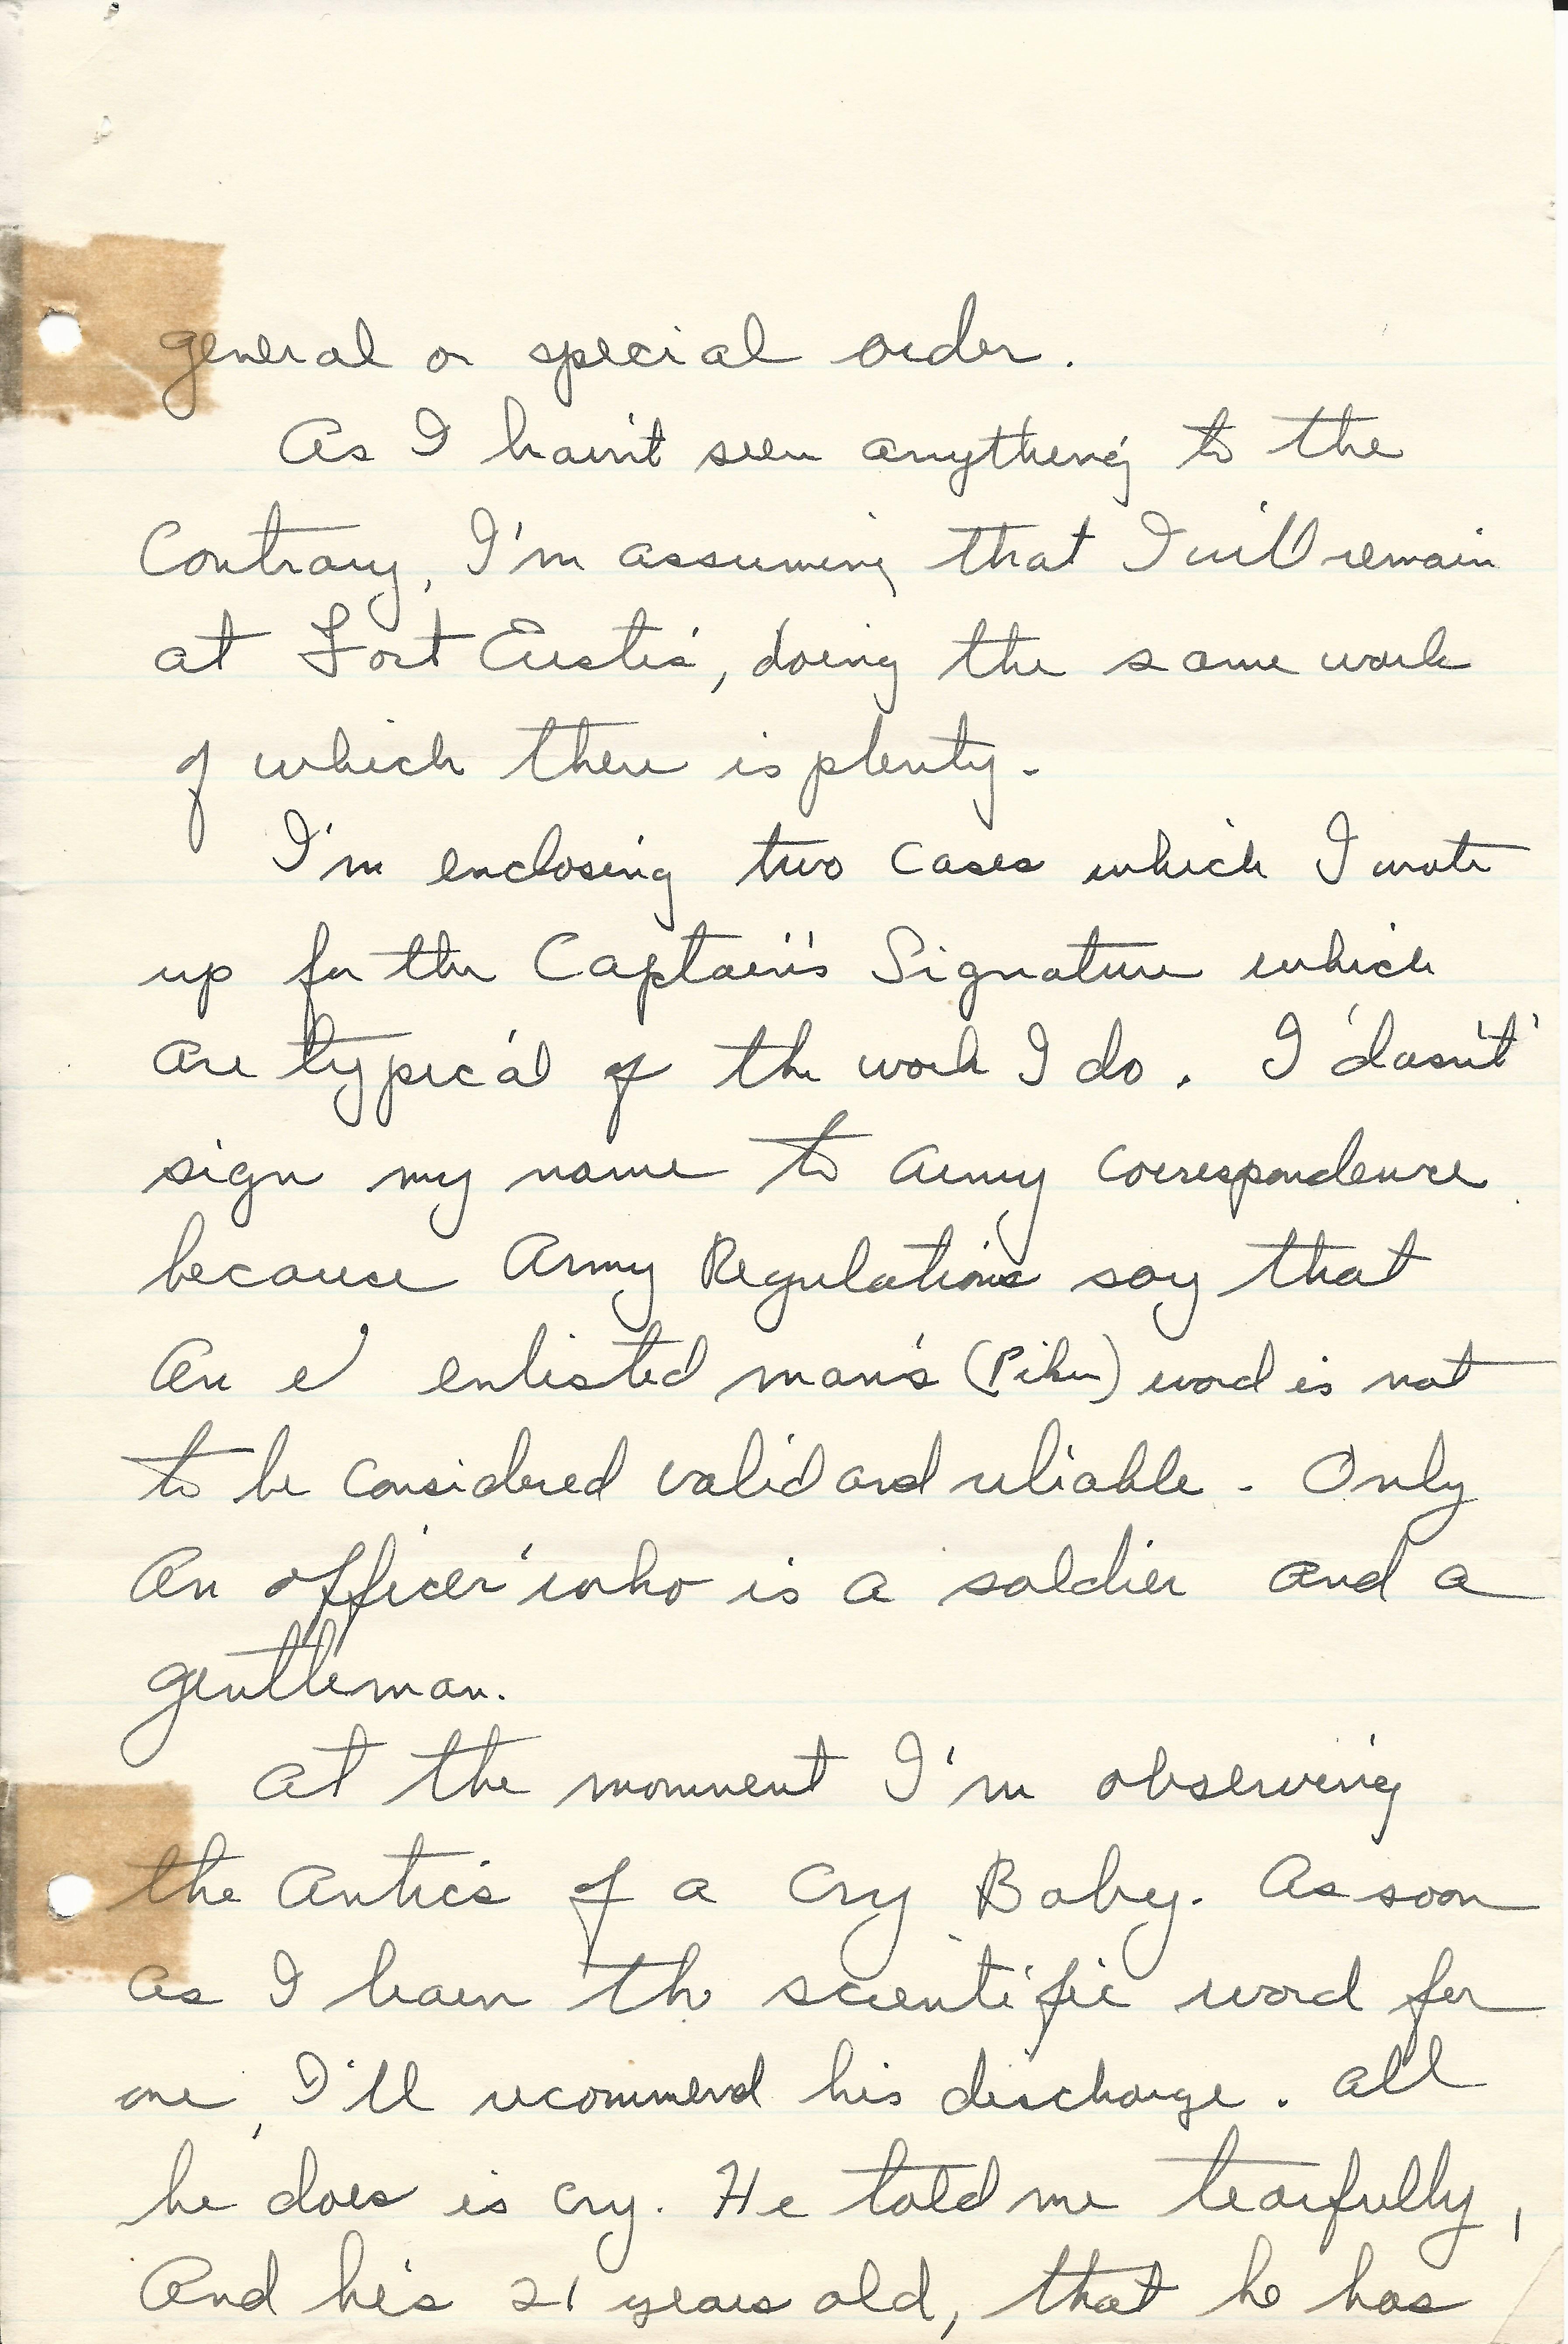 general or special order.
As I haven't seen anything to the
Contrary, I'm assuming that I will remain
at Fort Eustis, doing the same work
of which there is plenty.
I'm enclosing two cases which I wrote
up for the Captain's Signature which
are typical of the work I do. I 'dasn't'
sign my name to Army Correspondence
because Army Regulations say that
An e enlisted man's word is not
to be considered valid and reliable. Only
An officer who is a soldier and a
gentleman.
At the moment I'm observing
the Antics of a Cry Baby. As soon
as I learn the scientific word for
one, I'll recommend his discharge. All
he does is cry. He told me tearfully,
And he's 21 years old, that he has